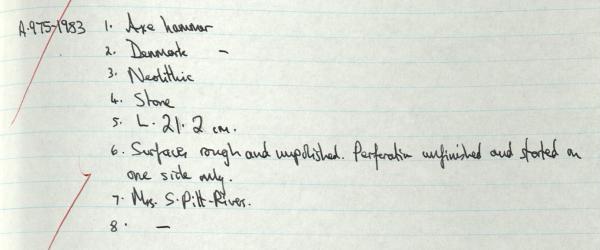 A.975-1983 1. Axe hammer
2. Denmark -
3. Neolithic
4. Stone
5. L. 21.2 cm.
6. Surfaces rough and unpolished. Perforation unfinished and started on
one side only.
7. Mrs. S. Pitt-Rivers.
8. -